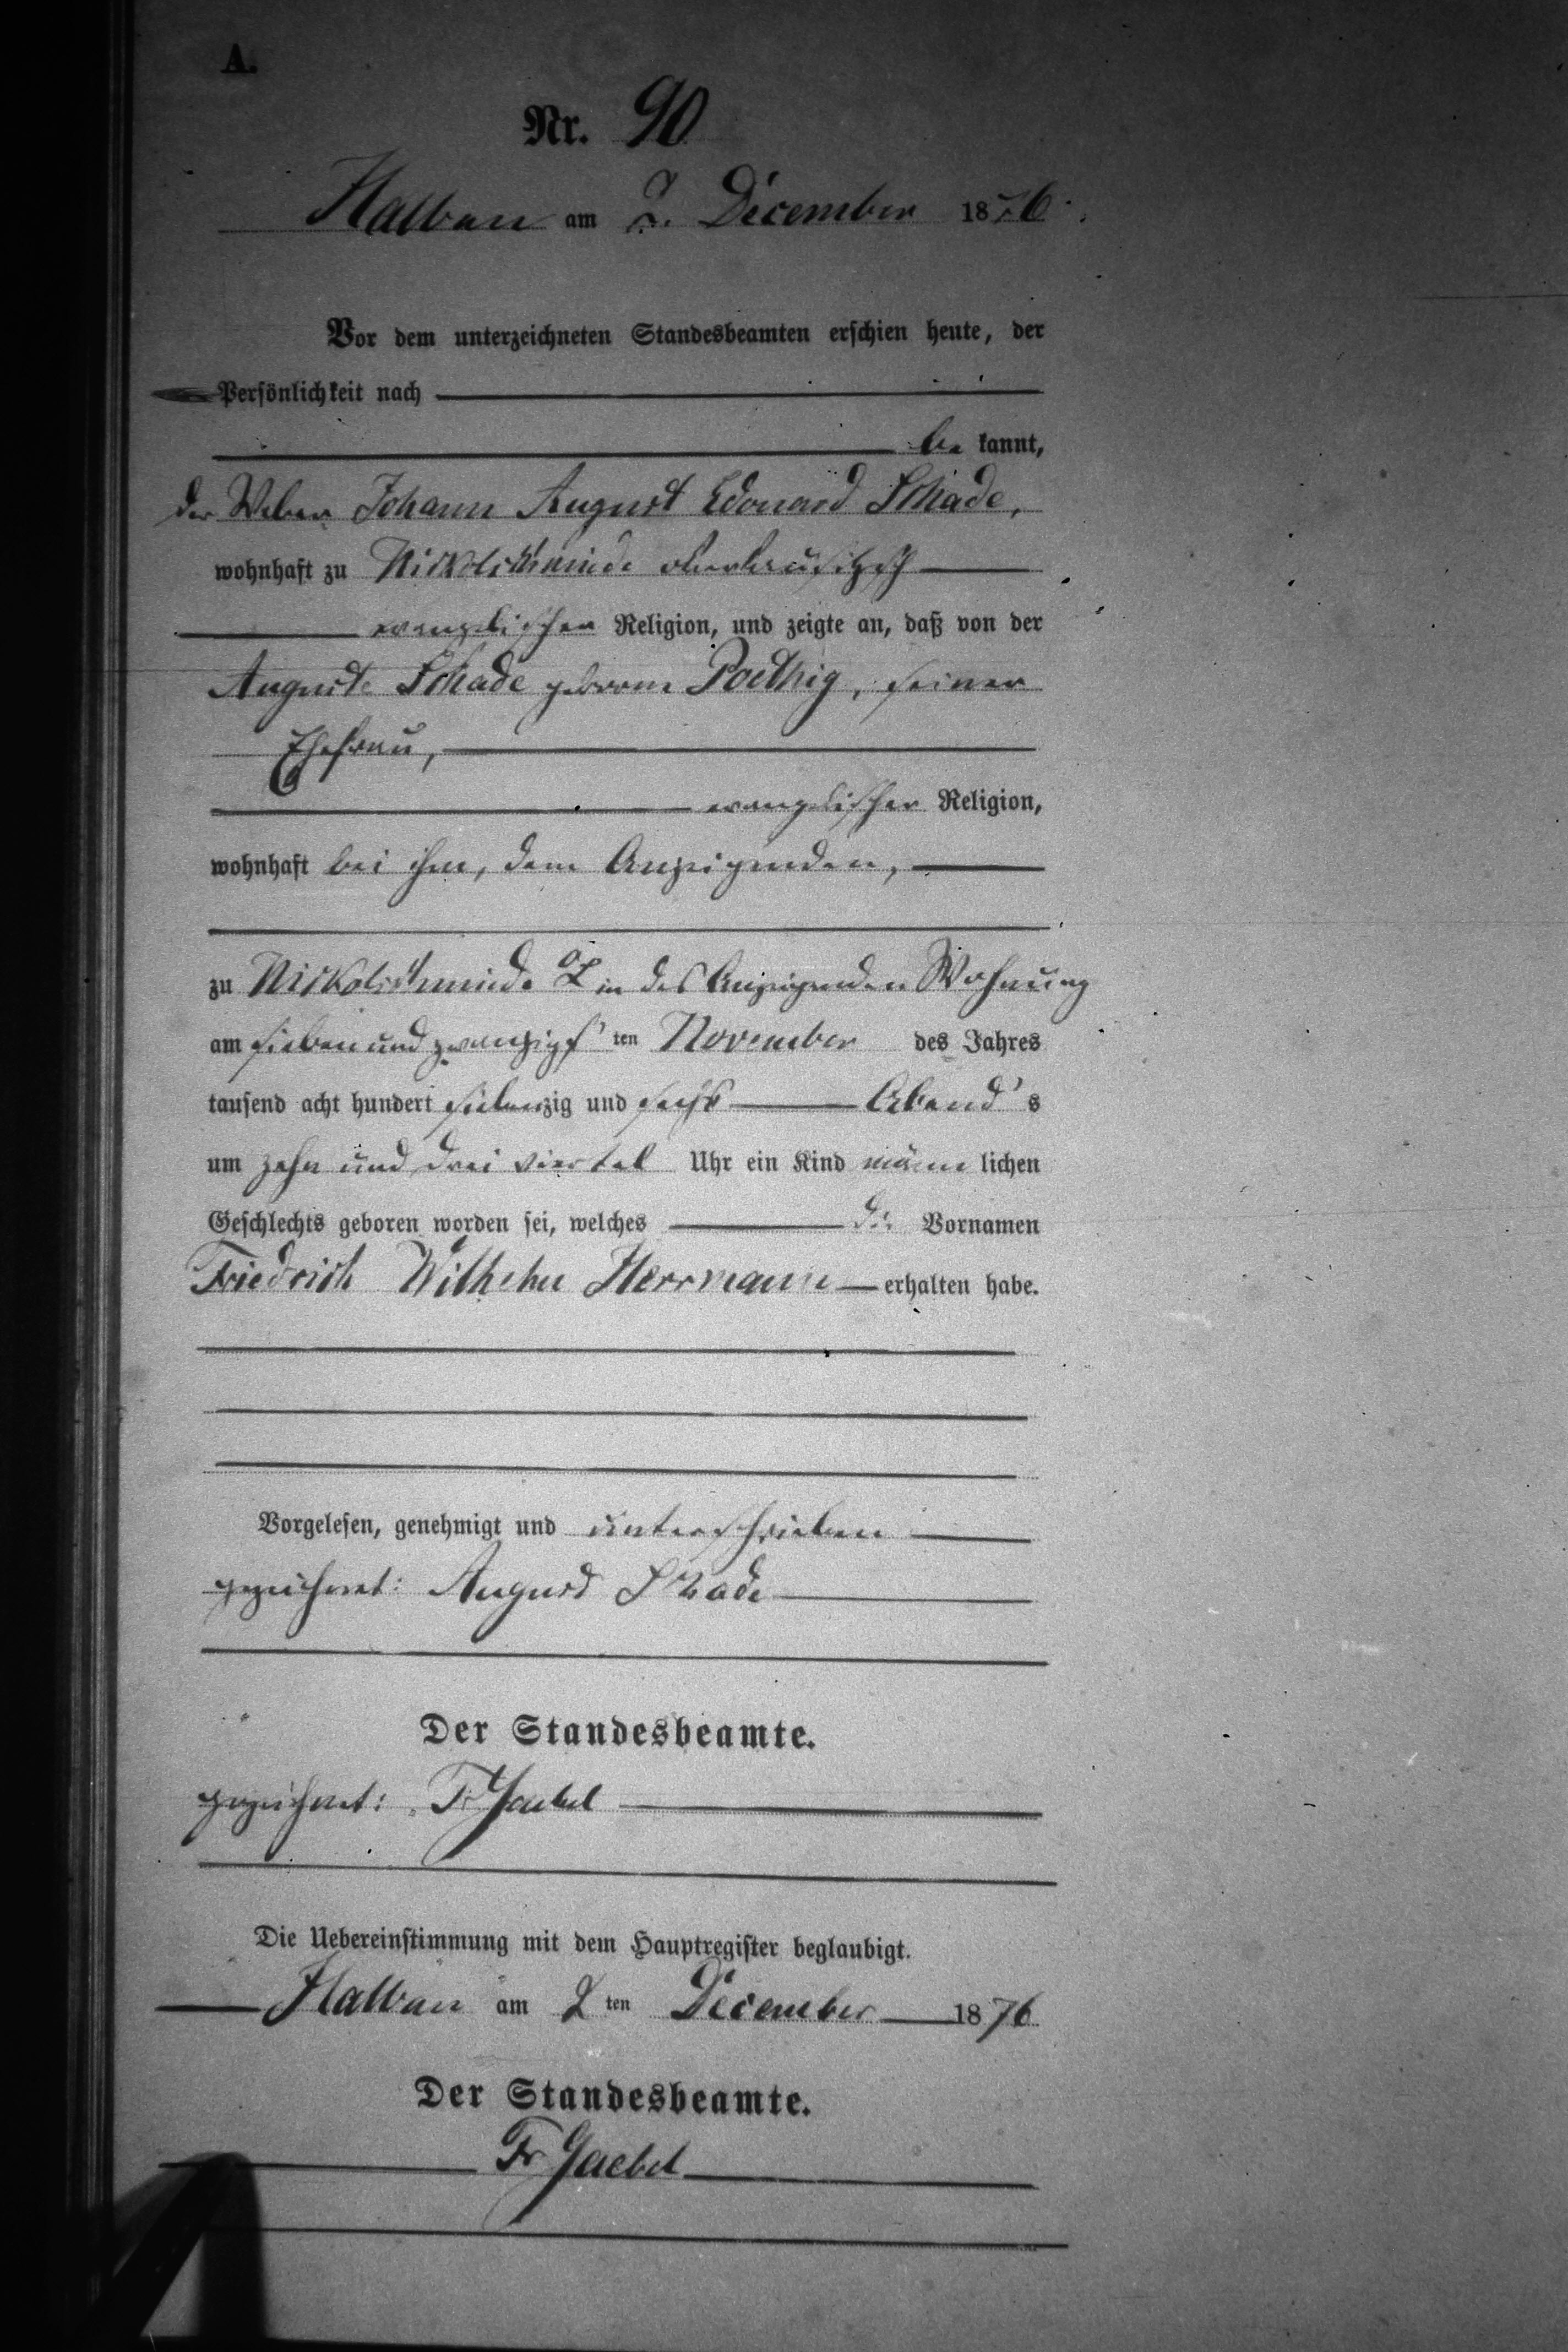 A.
Nr. 90
Halbau am 2. December 1876.
Vor dem unterzeichneten Standesbeamten erschien heute, der
Persönlichkeit nach
be kannt,
der Weber Johann August Edouard Schade,
wohnhaft zu Nickolschmiede oberlausitzsch
evangelischer Religion, und zeigte an, daß von der
Auguste Schade geborne Poethig, seiner
Ehefrau,
evangelischer Religion,
wohnhaft bei ihm, dem Anzeigenden,
zu Nickolschmiede O/L in des Anzeigenden Wohnung
am sieben und zwanzigs ten November des Jahres
tausend acht hundert siebenzig und sechs Abend's
um zehn und drei viertel Uhr ein Kind männ lichen
Geschlechts geboren worden sei, welches die Vornamen
Friedrich Wilhelm Herrmann erhalten habe.
Vorgelesen, genehmigt und unterschrieben
gezeichnet: August Schade
Der Standesbeamte.
gezeichnet: Fr Gaebel
Die Uebereinstimmung mit dem Hauptregister beglaubigt.
Halbau am 2 ten December 1876
Der Standesbeamte.
Fr Gaebel